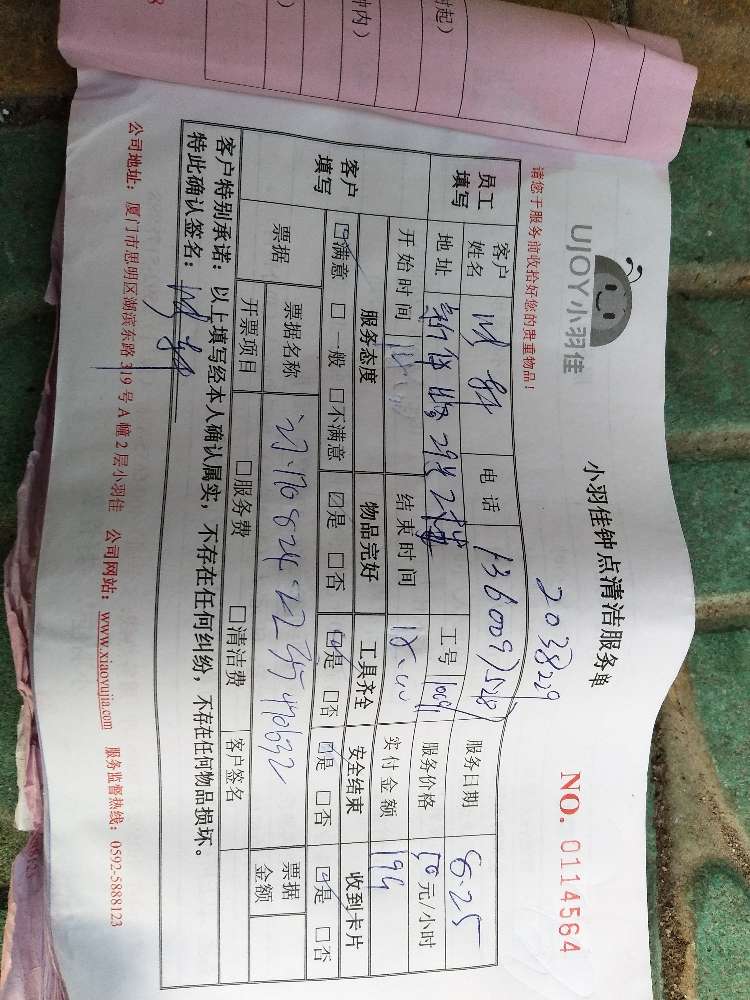 时起)
钟内)
UJOY小羽佳
小羽佳钟点清洁服务单
2038229
NO. 0114564
请您于服务前收拾好您的贵重物品!
员工填写
客户姓名 电话 服务日期 8.25
地址 工号 服务价格 50元/小时
开始时间 结束时间 18.00 实付金额 194
客户填写
服务态度 物品完好 工具齐全 安全结束 收到卡片
☑满意 □一般 □不满意 ☑是 □否 ☑是 □否 ☑是 □否 ☑是 □否
票据 票据名称 票据金额
开票项目 □服务费 □清洁费 客户签名
客户特别承诺:以上填写经本人确认属实,不存在任何纠纷,不存在任何物品损坏。
特此确认签名:
公司地址:厦门市思明区湖滨东路 319 号 A 幢 2 层小羽佳 公司网站:www.xiaoyujia.com 服务监督热线:0592-5888123